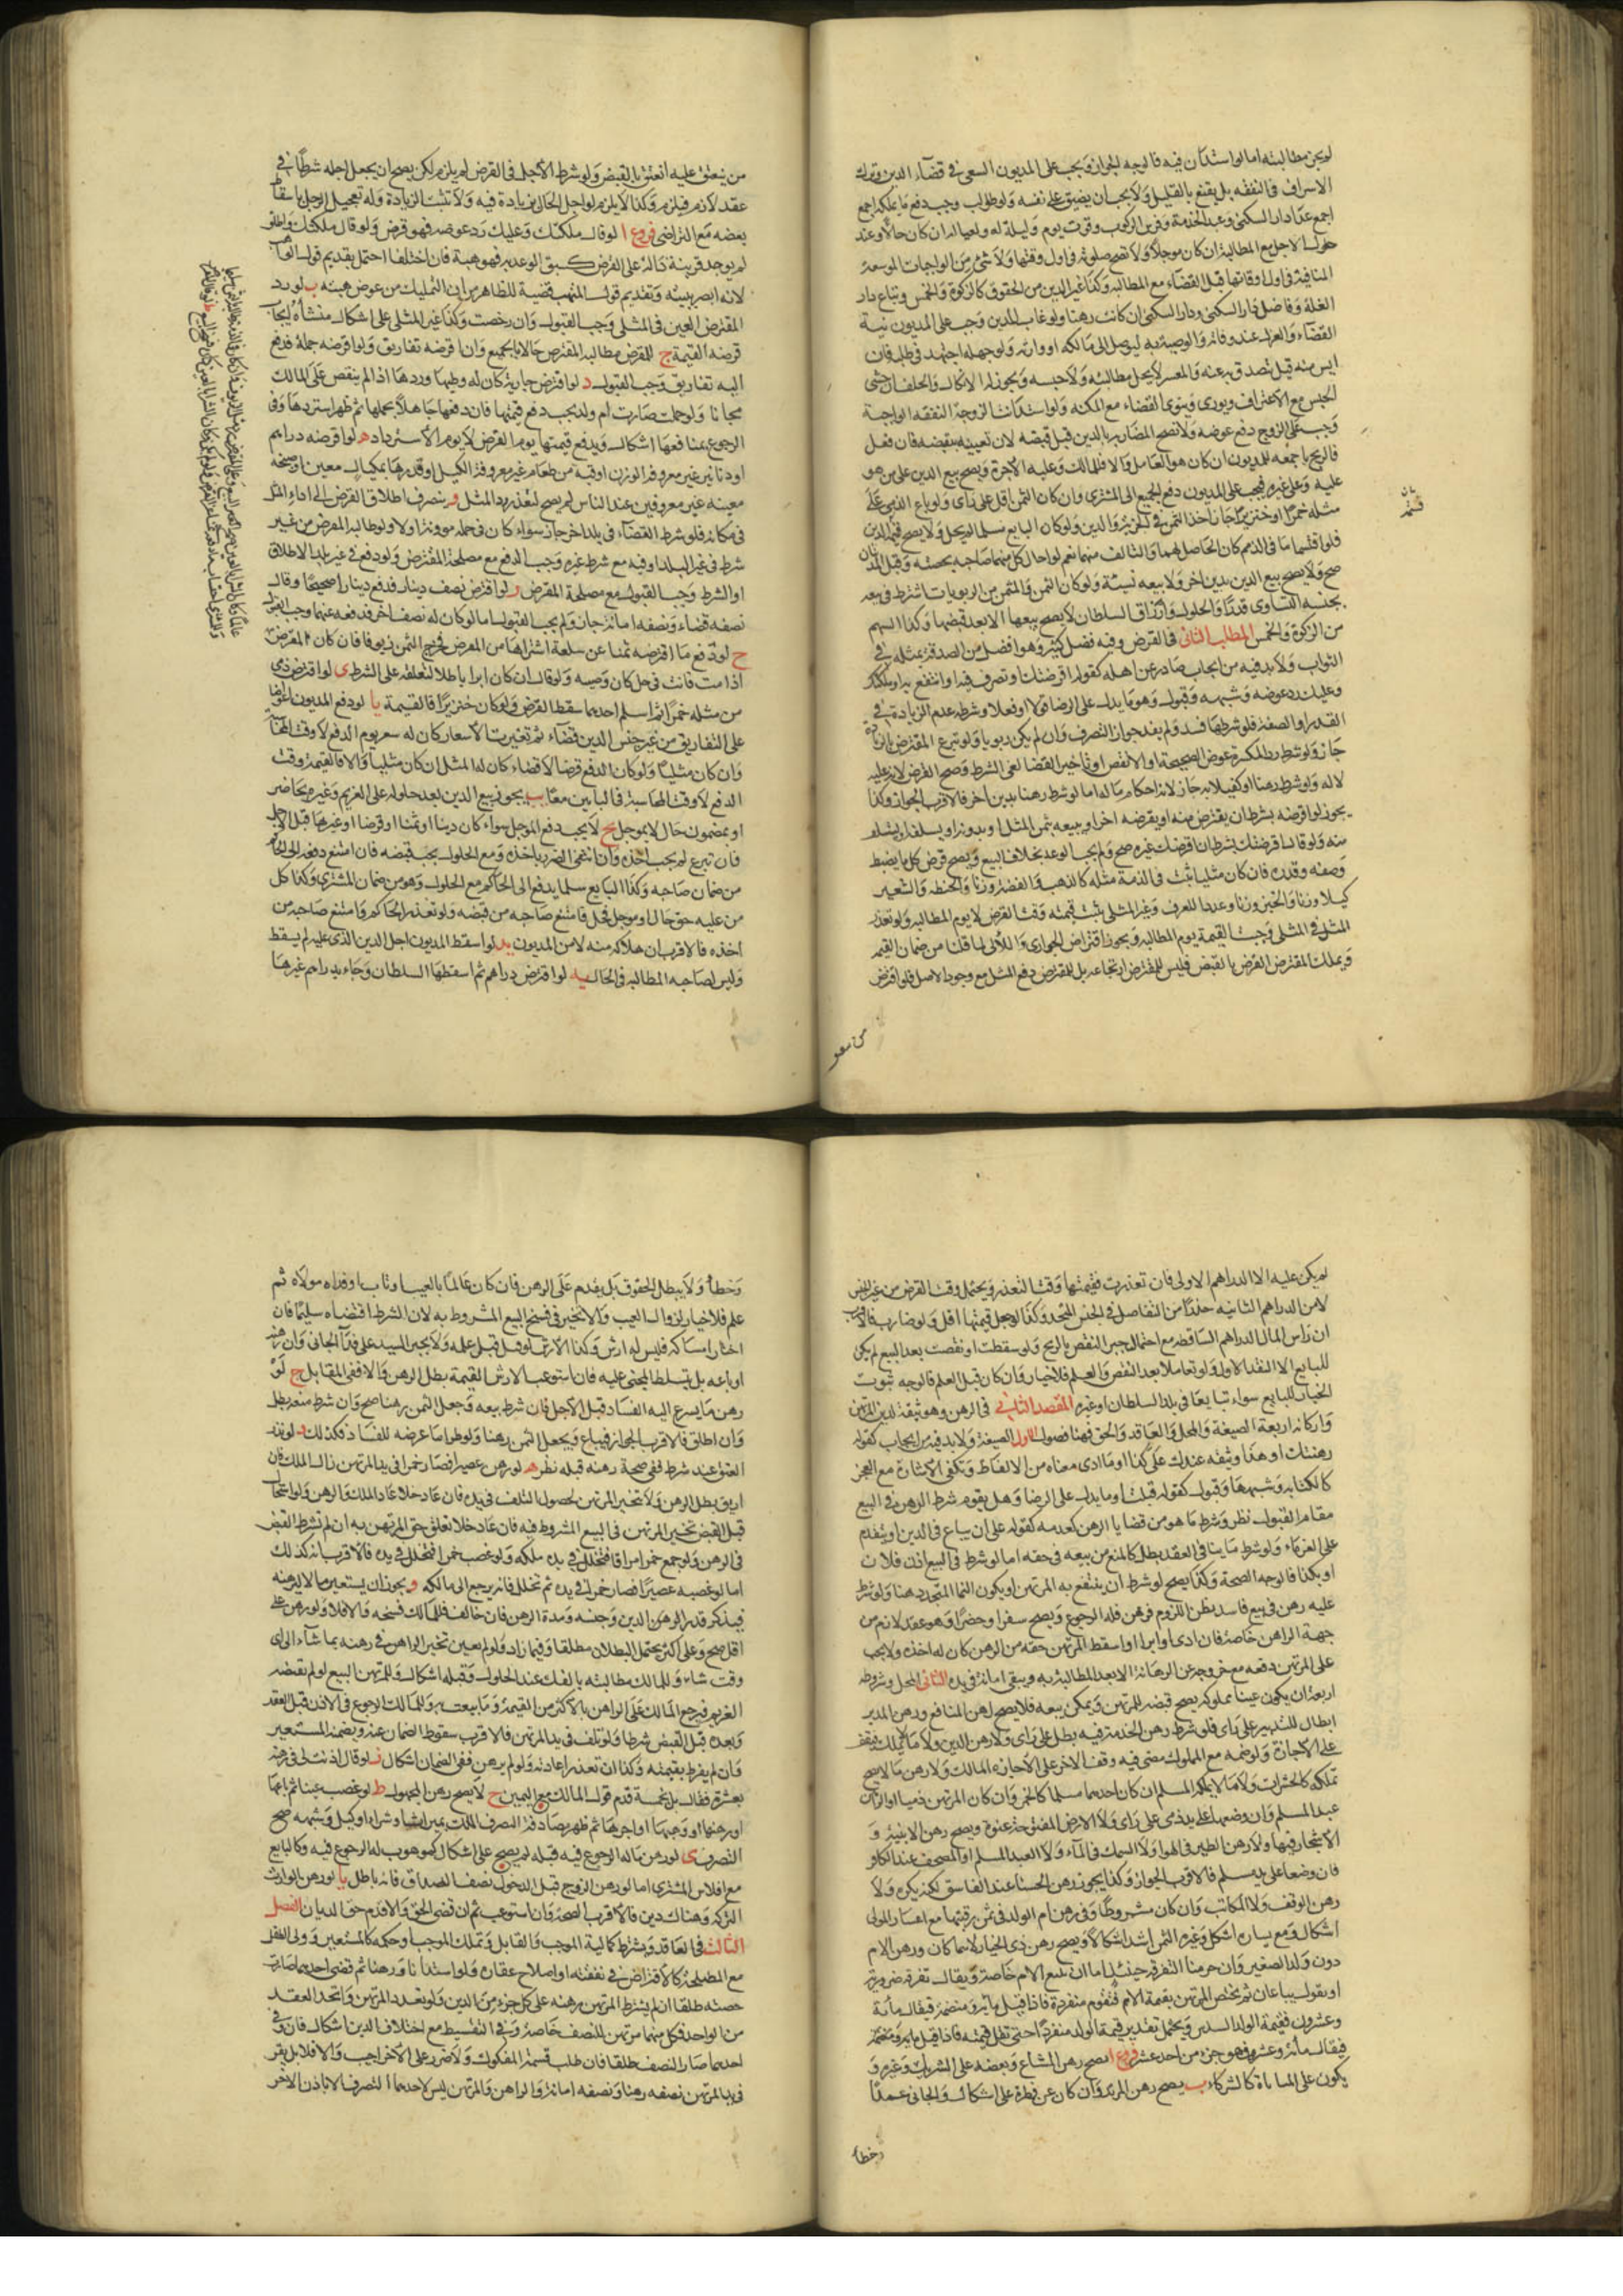 لم يجز مطالبته اما لو استدان فيه فالوجه الجواز ويجب على المديون السعي في قضاء الدين وترك
الاسراف في النفقه بل يقنع بالقليل ولا يجب ان يضيق على نفسه ولو طولب وجب دفع ما يملكه اجمع
اجمع عدا دار السكنى وعبد الخدمة وفرس الركوب وقوت يوم وليلة له ولعياله ان كان حالا وعند
حلول الاجل مع المطالبة ان كان موجلا ولا تصح صلوته في اول وقتها ولا شئ من الواجبات الموسعة
المنافية في اول اوقاتها قبل القضاء مع المطالبه وكذا غير الدين من الحقوق كالزكوة والخمس وتباع دار
الغلة وفاضل دار السكنى ودار السكنى ان كانت رهنا ولو غاب المدين وجب على المديون نية
القضاء والعزل عند وفاته والوصية به ليوصل الى مالكه او وارثه ولو جهله اجتهد في طلبه فان
ايس منه قيل تصدق به عنه والمعسر لا يحل مطالبته ولا حبسه ويجوز له الانكار والحلف ان خشى
الحبس مع الاعتراف ويورى وينوى القضاء مع المكنه ولو استدانت الزوجة النفقه الواجبة
وجب على الزوج دفع عوضه ولا تصح المضاربة بالدين قبل قبضه لان تعيينه بقبضه فان فعل
فالربح باجمعه للمديون ان كان هو العامل والا فللمالك وعليه الاجرة ويصح بيع الدين على من هو
عليه وعلى غيره فيجب على المديون دفع الجميع الى المشترى وان كان الثمن اقل على راى ولو باع الذمي على
مثله خمرا او خنزيرا جاز اخذ الثمن في الجزية والدين ولو كان البايع مسلما لم يحل ولا يصح قسمة الدين
فلو اقتسما ما في الذمم كان الحاصل لهما والتالف منهما نعم لو احال كل منهما صاحبه بحصته وقبل المدينان
صح ولا يصح بيع الدين بدين اخر ولا بيعه نسيئة ولو كان الثمن والمثمن من الربويات اشترط في بيعه
بجنسه التساوى قدرا والحلول وارزاق السلطان لا يصح بيعها الا بعد قبضها وكذا السهم
من الزكوة والخمس المطلب الثاني في القرض وفيه فضل كثير وهو افضل من الصدقة بمثله في
الثواب ولا بد فيه من ايجاب صادر عن اهله كقوله اقرضتك او تصرف فيه او انتفع به او ملكتك
وعليك رد عوضه وشبهه وقبول وهو ما يدل على الرضا قولا او فعلا وشرطه عدم الزيادة في
القدر او الصفة فلو شرطها فسد ولم يفد جواز التصرف وان لم يكن ربويا ولو تبرع المقترض بالزيادة
جاز ولو شرط رد المكسرة عوض الصحيحة او الانقص او تاخير القضا لغى الشرط وصح القرض لانه عليه
لا له ولو شرط رهنا او كفيلا به جاز لانه احكام ماله اما لو شرط رهنا بدين اخر فالاقرب الجواز وكذا
يجوز لو اقرضه بشرط ان يقترض منه او يقرضه اخر او يبيعه بثمن المثل او بدونه او يسلفه او يستلف
منه ولو قال اقرضتك بشرط ان اقرضك غيره صح ولم يجب الوعد بخلاف البيع ويصح قرض كل ما يضبط
وصفه وقدره فان كان مثليا ثبت في الذمة مثله كالذهب والفضة وزنا والحنطه والشعير
كيلا وزنا والخبز وزنا وعددا للعرف وغير المثلي يثبت قيمته وقت القرض لا يوم المطالبه ولو تعذر
المثل في المثلي وجبت القيمة يوم المطالبه ويجوز اقتراض الجواري واللالى لما قلنا من ضمان القيمه
ويملك المقترض القرض بالقبض فليس للمقرض ارتجاعه بل للمقترض دفع المثل مع وجود الاصل فلو اقترض
من ينعتق عليه انعتق بالقبض ولو شرط الاجل في القرض لم يلزم لكن يصح ان يجعل اجله شرطا في
عقد لازم فيلزم وكذا لا يلزم لو اجل الحال بزيادة فيه ولا تثبت الزيادة وله تعجيل المؤجل باسقاط
بعضه مع التراضي فروع ا لو قال ملكتك وعليك رد عوضه فهو قرض ولو قال ملكتك واطلق
لم يوجد قرينة دالة على القرض كسبق الوعد به فهو هبة فان اختلفا احتمل تقديم قول الواهب
لانه ابصر بنيته وتقديم قول المتهب قضية للظاهر من ان التمليك من غير عوض هبته ب لو رد
المقترض العين في المثلي وجب القبول وان رخصت وكذا غير المثلي على اشكال منشاه ايجاب
قرضه القيمة ج للمقرض مطالبة المقترض حالا بالجميع وان اقرضه تفاريق ولو اقرضه جملة فدفع
اليه تفاريق وجب القبول د لو اقترض جارية كان له وطيها وردها اذا لم ينقص على المالك
مجانا ولو حملت صارت ام ولد يجب دفع قيمتها فان دفعها جاهلا بحملها ثم ظهر استردها وفي
الرجوع بمنافعها اشكال ويدفع قيمتها يوم القرض لا يوم الاسترداد ه لو اقرضه دراهم
او دنانير غير معروفة الوزن او قبة من طعام غير معروفة الكيل او قدرها بمكيال معين او صنجة
معينه غير معروفين عند الناس لم يصح لتعذر رد المثل و ينصرف اطلاق القرض الى اداء المثل
في مكانه فلو شرط القضاء في بلد اخر جاز سواء كان في حمله مؤنة او لا ولو طالبه المقرض من غير
شرط في غير البلد او فيه مع شرط غيره وجب الدفع مع مصلحة المقترض ولو دفع في غير بلد الاطلاق
او الشرط وجب القبول مع مصلحة المقرض ز لو اقترض نصف دينار فدفع دينارا صحيحا وقال
نصفه قضاء ونصفه امانة جاز ولم يجب القبول اما لو كان له نصف اخر فدفعه عنهما وجب القبول
ح لو دفع ما اقترضه ثمنا عن سلعة اشتراها من المقرض فخرج الثمن زيوفا فان كان المقرض
اذا مت فانت في حل كان وصية ولو قال ان كان ابرا باطلا لتعلقه على الشرط ى لو اقترض ذمى
من مثله خمرا ثم اسلم احدهما سقط القرض ولو كان خنزيرا فالقيمة يا لو دفع المديون اعواضا
على التفاريق من غير جنس الدين قضاء ثم تغيرت الاسعار كان له سعر يوم الدفع لا وقت المحاسبة
وان كان مثليا ولو كان الدفع قرضا لا قضاء كان له المثل ان كان مثليا والا فالقيمة وقت
الدفع لا وقت المحاسبة في البابين معا يب يجوز بيع الدين بعد حلوله على الغريم وغيره بحاضر
او بمضمون حال لا بموجل يج لا يجب دفع الموجل سواء كان دينا او ثمنا او قرضا او غيرها قبل الاجل
فان تبرع لم يجب اخذه وان انتفى الضرر باخذه ومع الحلول يجب قبضه فان امتنع دفعه الى الحاكم
من ضمان صاحبه وكذا البايع سلما يدفع الى الحاكم مع الحلول وهو من ضمان المشترى وكذا كل
من عليه حق حال او موجل فحل فامتنع صاحبه من قبضه ولو تعذر الحاكم وامتنع صاحبه من
اخذه فالاقرب ان هلاكه منه لا من المديون يد لو اسقط المديون اجل الدين الذي عليه لم يسقط
وليس لصاحبه المطالبه في الحال يه لو اقترض دراهم ثم اسقطها السلطان وجاء بدراهم غيرها
لم يكن عليه الا الدراهم الاولى فان تعذرت فقيمتها وقت التعذر ويحتمل وقت القرض من غير الجنس
لا من الدراهم الثانيه حذرا من التفاضل في الجنس المتحد وكذا لو جعل قيمتها اقل ولو ضاربه فالاقرب
ان راس المال الدراهم الساقطه مع احتمال جبر النقص بالربح ولو سقطت او نقصت بعد البيع لم يكن
للبايع الا النقد الاول ولو تعاملا بعد النقص والعلم فلا خيار وان كان قبل العلم فالوجه ثبوت
الخيار للبايع سواء تبايعا في بلد السلطان او غيره المقصد الثاني في الرهن وهو وثيقة لدين المرتهن
واركانه اربعة الصيغة والمحل والعاقد والحق فهنا فصول الاول الصيغة ولا بد فيه من ايجاب كقوله
رهنتك او هذا وثيقه عندك على كذا او ما ادى معناه من الالفاظ وتكفى الاشارة مع العجز
كالكتابه وشبهها وقبول كقوله قبلت او ما يدل على الرضا وهل يقوم شرط الرهن في البيع
مقام القبول نظر وشرط ما هو من قضايا الرهن كعدمه كقوله على ان يباع في الدين او يتقدم
على الغرماء ولو شرط ما ينافي العقد بطل كالمنع من بيعه في حقه اما لو شرط في البيع اذن فلان
او بكذا فالوجه الصحة وكذا يصح لو شرط ان ينتفع به المرتهن او يكون النما المتجدد رهنا ولو شرط
عليه رهن في بيع فاسد بظن اللزوم فرهن فله الرجوع ويصح سفرا وحضرا وهو عقد لازم من
جهة الراهن خاصة فان ادى او ابرا او اسقط المرتهن حقه من الرهن كان له اخذه ولا يجب
على المرتهن دفعه مع خروجه عن الرهانة الا بعد المطالبة به ويبقى امانة في يده الثاني المحل وشروطه
اربعة ان يكون عينا مملوكه يصح قبضه للمرتهن ويمكن بيعه فلا يصح رهن المنافع ورهن المدبر
ابطال للتدبير على راى فلو شرط رهن الخدمة فيه بطل على راى ولا رهن الدين ولا ما لا يملك فيقف
على الاجازة ولو ضمه مع المملوك مضى فيه وقف الاخر على الاجازه المالك ولا رهن ما لا يصح
تملكه كالحشرات ولا ما لا يملكه المسلم ان كان احدهما مسلما كالخمر وان كان المرتهن ذميا او الراهن
عبد المسلم وان وضعها على يد ذمى على راى ولا الارض المفتوحة عنوة ويصح رهن الابنية و
الاشجار فيها ولا رهن الطير في الهوا ولا السمك في الماء ولا العبد المسلم او المصحف عند الكافر
فان وضعا على يد مسلم فالاقرب الجواز وكذا يجوز رهن الحسنا عند الفاسق لكنه يكره ولا
رهن الوقف ولا المكاتب وان كان مشروطا وفي رهن ام الولد في ثمن رقبتها مع اعسار المولى
اشكال ومع يساره اشكل وغيره الثمن اشد اشكالا ويصح رهن ذى الخيار لايهما كان ورهن الام
دون ولدها الصغير وان حرمنا التفرقه حينئذ اما ان تبيع الام خاصة ويقال تفرقة ضرورية
او يقول يباعان ثم يختص المرتهن بقيمة الام فتقوم منفردة فاذا قيل مايه ومنضمة فيقال مائة
وعشرون فقيمة الولد السدس ويحتمل تقدير قيمة الولد منفردا حتى تقل قيمته فاذا قيل مايه ومنضمة
فيقال مائة وعشرة فهو جزء من احد عشر فروع ا يصح رهن المشاع وبعضه على الشريك وغيره و
يكون على المهاياة كالشركاء ب يصح رهن المرتد وان كان عن فطرة على اشكال والجاني عمدا
وخطا ولا يبطل الحقوق بل يقدم على الرهن فان كان عالما بالعيب او تاب او فداه مولاه ثم
علم فلا خيار لزوال العيب والا تخير في فسخ البيع المشروط به لان الشرط اقتضاه سليما فان
اختار امساكه فليس له ارش وكذا لا ارش لو قتل قبل علمه ولا يجبر السيد على فداء الجاني وان رهنه
او باعه بل يتسلط المجنى عليه فان استوعب الارش القيمة بطل الرهن والا ففي المقابل ج لو
رهن ما يسرع اليه الفساد قبل الاجل فان شرط بيعه وجعل الثمن رهنا صح وان شرط منعه بطل
وان اطلق فالاقرب الجواز فيباع ويجعل الثمن رهنا ولو طرا ما عرضه للفساد فكذلك د لو نذر
العتق عند شرط ففي صحة رهنه قبله نظر ه لو رهن عصيرا فصار خمرا في يد المرتهن زال الملك فان
اريق بطل الرهن ولا تخير المرتهن لحصول التلف في يده فان عاد خلا عاد الملك والرهن ولو استحال
قبل القبض تخير المرتهن في البيع المشروط فيه فان عاد خلا تعلق حق المرتهن به ان لم نشرط القبض
في الرهن ولو جمع خمرا مراقا فتخلل في يده ملكه ولو غصب خمرا فتخلل في يده فالاقرب انه كذلك
اما لو غصبه عصيرا فصار خمرا في يده ثم تخلل فانه يرجع الى مالكه و يجوز ان يستعير مالا ليرهنه
فيذكر قدر الرهن الدين وجنسه ومدة الرهن فان خالف فللمالك فسخه والا فلا ولو رهن على
اقل صح وعلى اكثر يحتمل البطلان مطلقا وفيما زاد ولو لم يعين تخير الراهن في رهنه بما شاء الى اى
وقت شاء وللمالك مطالبته بالفك عند الحلول وقبله اشكال وللمرتهن البيع لو لم يقضه
الغريم فيرجع المالك على الراهن بالاكثر من القيمة وما بيعت به وللمالك الرجوع في الاذن قبل العقد
وبعده قبل القبض شرطا ولو تلف في يد المرتهن فالاقرب سقوط الضمان عنه ويضمنه المستعير
وان لم يفرط بقيمته وكذا ان تعذر اعادته ولو لم يرهن ففي الضمان اشكال ز لو قال اذنت لي في رهنه
بعشرة فقال بل بخمسة قدم قول المالك مع اليمين ح لا يصح رهن المجهول ط لو غصب عينا ثم باعها
او رهنها او وهبها او اجرها ثم ظهر مصادفة التصرف الملك بميراث او شراء او وكيل وشبهه صح
التصرف ى لو رهن ماله الرجوع فيه قبله لم يصح على اشكال كموهوب له الرجوع فيه وكالبايع
مع افلاس المشترى اما لو رهن الزوج قبل الدخول نصف الصداق فانه باطل يا لو رهن الوارث
التركه وهناك دين فالاقرب الصحة وان استوعب ثم ان قضى الحق والا قدم حق الديان الفصل
الثالث في العاقد ويشترط كمالية الموجب والقابل وتملك الموجب او حكمه كالمستعير وولى الطفل
مع المصلحة كالاقتراض في نفقته او اصلاح عقاره ولو استدانا ورهنا ثم قضى احدهما صارت
حصته طلقا ان لم يشترط المرتهن رهنه على كل جزء من الدين ولو تعدد المرتهن واتحد العقد
من الواحد فكل منهما مرتهن للنصف خاصة وفي التقسيط مع اختلاف الدين اشكال فان وفى
احدهما صار النصف طلقا فان طلب قسمة المفكوك ولا ضرر على الاخر اجيب والا فلا بل يقر
في يد المرتهن نصفه رهنا ونصفه امانة والراهن والمرتهن ليس لاحدهما التصرف الا باذن الاخر
وخطا